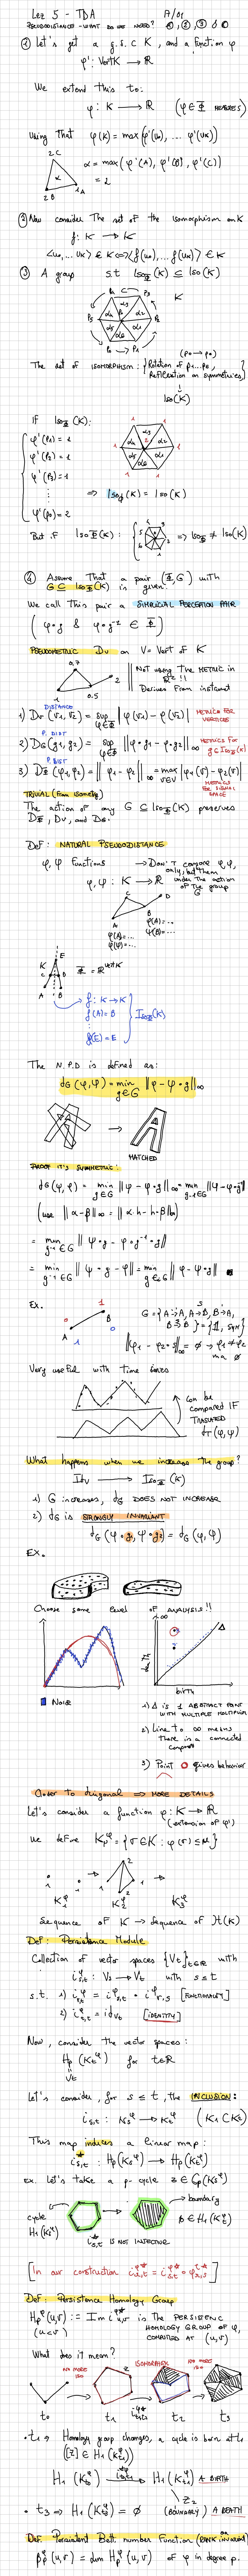 Lez 5 - TDA
① Let's get a g.s.c K, and a function φ
φ': VertK → ℝ
We extend this to:
φ: K → ℝ (φ ∈ Φ
Using That φ(K) = max(φ'(u₀), ... φ'(uₖ))
2C
α = max(φ'(A), φ'(B), φ'(C))
= 2
2B 1A
② Now consider The set of the isomorphism on K
f: K → K
<u₀, ... uₖ> ∈ K ⟺ <f(u₀), ... f(uₖ)> ∈ K
③ A group s.t Iso_Φ(K) ⊆ Iso(K)
K
The set of isomorphism: {Rotation of P₁...P₆, Reflection on symmetries} (P₀ → P₀)
Iso(K)
If Iso_Φ(K):
φ'(P₁) = 1
φ'(P₂) = 1
φ'(P₃) = 1
⋮
φ'(P₀) = 2
⇒ Iso_Φ(K) = Iso(K)
But if Iso_Φ(K): ⇒ Iso_Φ ≠ Iso(K)
④ Assume That a pair (Φ, G) with
G ⊆ Iso_Φ(K) is given.
We call This pair a SIMPLICIAL PERCEPTION PAIR
(φ∘g & φ∘g⁻¹ ∈ Φ)
PSEUDOMETRIC Dv on V = Vert of K
0,7
2
0.5
Not using The METRIC in ℝ² !!
Derives From instead
DISTANCE
1) Dv(v₁, v₂) = sup φ∈Φ |φ(v₁) - φ(v₂)| METRICS FOR VERTICES
P. DIST
2) DG(g₁, g₂) = sup φ∈Φ ||φ∘g₁ - φ∘g₂||∞ METRICS FOR g ⊆ Iso_Φ(K)
P. DIST
3) DΦ(φ₁, φ₂) = ||φ₁ - φ₂||∞ = max v∈V |φ₁(v) - φ₂(v)|
METRICS FOR SIGNAL SPACE
TRIVIAL (From isometry)
The action of any G ⊆ Iso_Φ(K) preserves
DΦ, Dv, and DG.
DEF: NATURAL PSEUDODISTANCE
φ, ψ Functions → Don't compare φ, ψ, only, but them under the action of the group G
φ, ψ: K → ℝ
C
D
A
B
φ(A)=...
φ(B)=...
φ(A)=...
ψ(A)=...
E
K
C D
A B
Φ = ℝ^VertK
f: K → K
f(A) = B
⋮
f(E) = E
Iso_Φ(K)
The N.P.D is defined as:
dG(φ, ψ) = min g∈G ||φ - ψ∘g||∞
MATCHED
PROOF IT'S SYMMETRIC!
dG(ψ, φ) = min g∈G ||ψ - φ∘g||∞ = min g⁻¹∈G ||ψ - φ∘g⁻¹||
(use ||α - β||∞ = ||α∘h - β∘h||∞)
= min g⁻¹∈G ||ψ∘g - φ∘g⁻¹∘g||
= min g⁻¹∈G ||ψ∘g - φ|| = min g∈G ||φ - ψ∘g||
Ex.
1
0
B
A
1
0
G = {A→A, A→B, B→A, B→B} = {1, SYM}
||φ₁ - φ₂∘s||∞ = ∅ → φ₁ ≠ φ₂
ma ∅
Very useful with time series
can be compared IF TRASLATED
What happens when we increase the group?
Idv → Iso_Φ(K)
1) G increases, dG DOES NOT INCREASE
2) dG is STRONGLY INVARIANT
dG(φ∘g₁, ψ∘g₂) = dG(φ, ψ)
EX.
Choose some level of ANALYSIS!!
∞
Δ
death
birth
Noise
1) Δ is 1 ABSTRACT POINT WITH MULTIPLE MULTIPLICITY
2) Line to ∞ means there is a connected component
3) Point gives behavior
Closer to diagonal ⇒ MORE DETAILS
Let's consider a function φ: K → ℝ
(extension of φ')
We define K_u^φ = {σ ∈ K: φ(σ) ≤ u}
K₁^φ K₂^φ K₃^φ
Sequence of K → Sequence of H(K)
Def: Persistence Module
Collection of vector spaces {Vt}t∈ℝ with
i_s,t^φ: Vs → Vt with s ≤ t
s.t. 1) i_r,t^φ = i_s,t^φ ∘ i_r,s^φ [FUNCTORIALITY]
2) i_t,t^φ = id_Vt [IDENTITY]
Now, consider the vector spaces:
Hp(Kt^φ) for t∈ℝ
Vt
Let's consider, for s ≤ t, the INCLUSION:
i_s,t: Ks^φ → Kt^φ (K₁ ⊂ K₂)
This map induces a linear map:
i*_s,t: Hp(Ks^φ) → Hp(Kt^φ)
ex. Let's take a p-cycle z ∈ Cp(Ks^φ)
cycle
H₁(Ks^φ)
boundary
∅ ∈ H₁(Kt^φ)
i*_s,t IS NOT INJECTIVE
[In our construction i_r,t^φ* = i_s,t^φ* ∘ i_r,s^φ*]
Def: Persistence Homology Group
Hp^φ(u,v) := Im i_u,v^φ* is The PERSISTENC
(u < v) HOMOLOGY GROUP OF φ, COMPUTED AT (u,v)
What does it mean?
NO MORE ISO
ISOMORPHISM
NO MORE ISO
t₀ t₁ t₂ t₃
• t₁ ⇒ Homology group changes, a cycle is born at t₁
([z] ∈ H₁(K_t₁^φ))
H₁(K_t₀^φ) → H₁(K_t₁^φ) A BIRTH
• t₃ ⇒ H₁(K_t₃^φ) = ∅ (BOUNDARY) A DEATH
Def: Persistent Betti number Function (or RANK INVARIANT)
βp^φ(u,v) = dim Hp^φ(u,v) of φ in degree p.